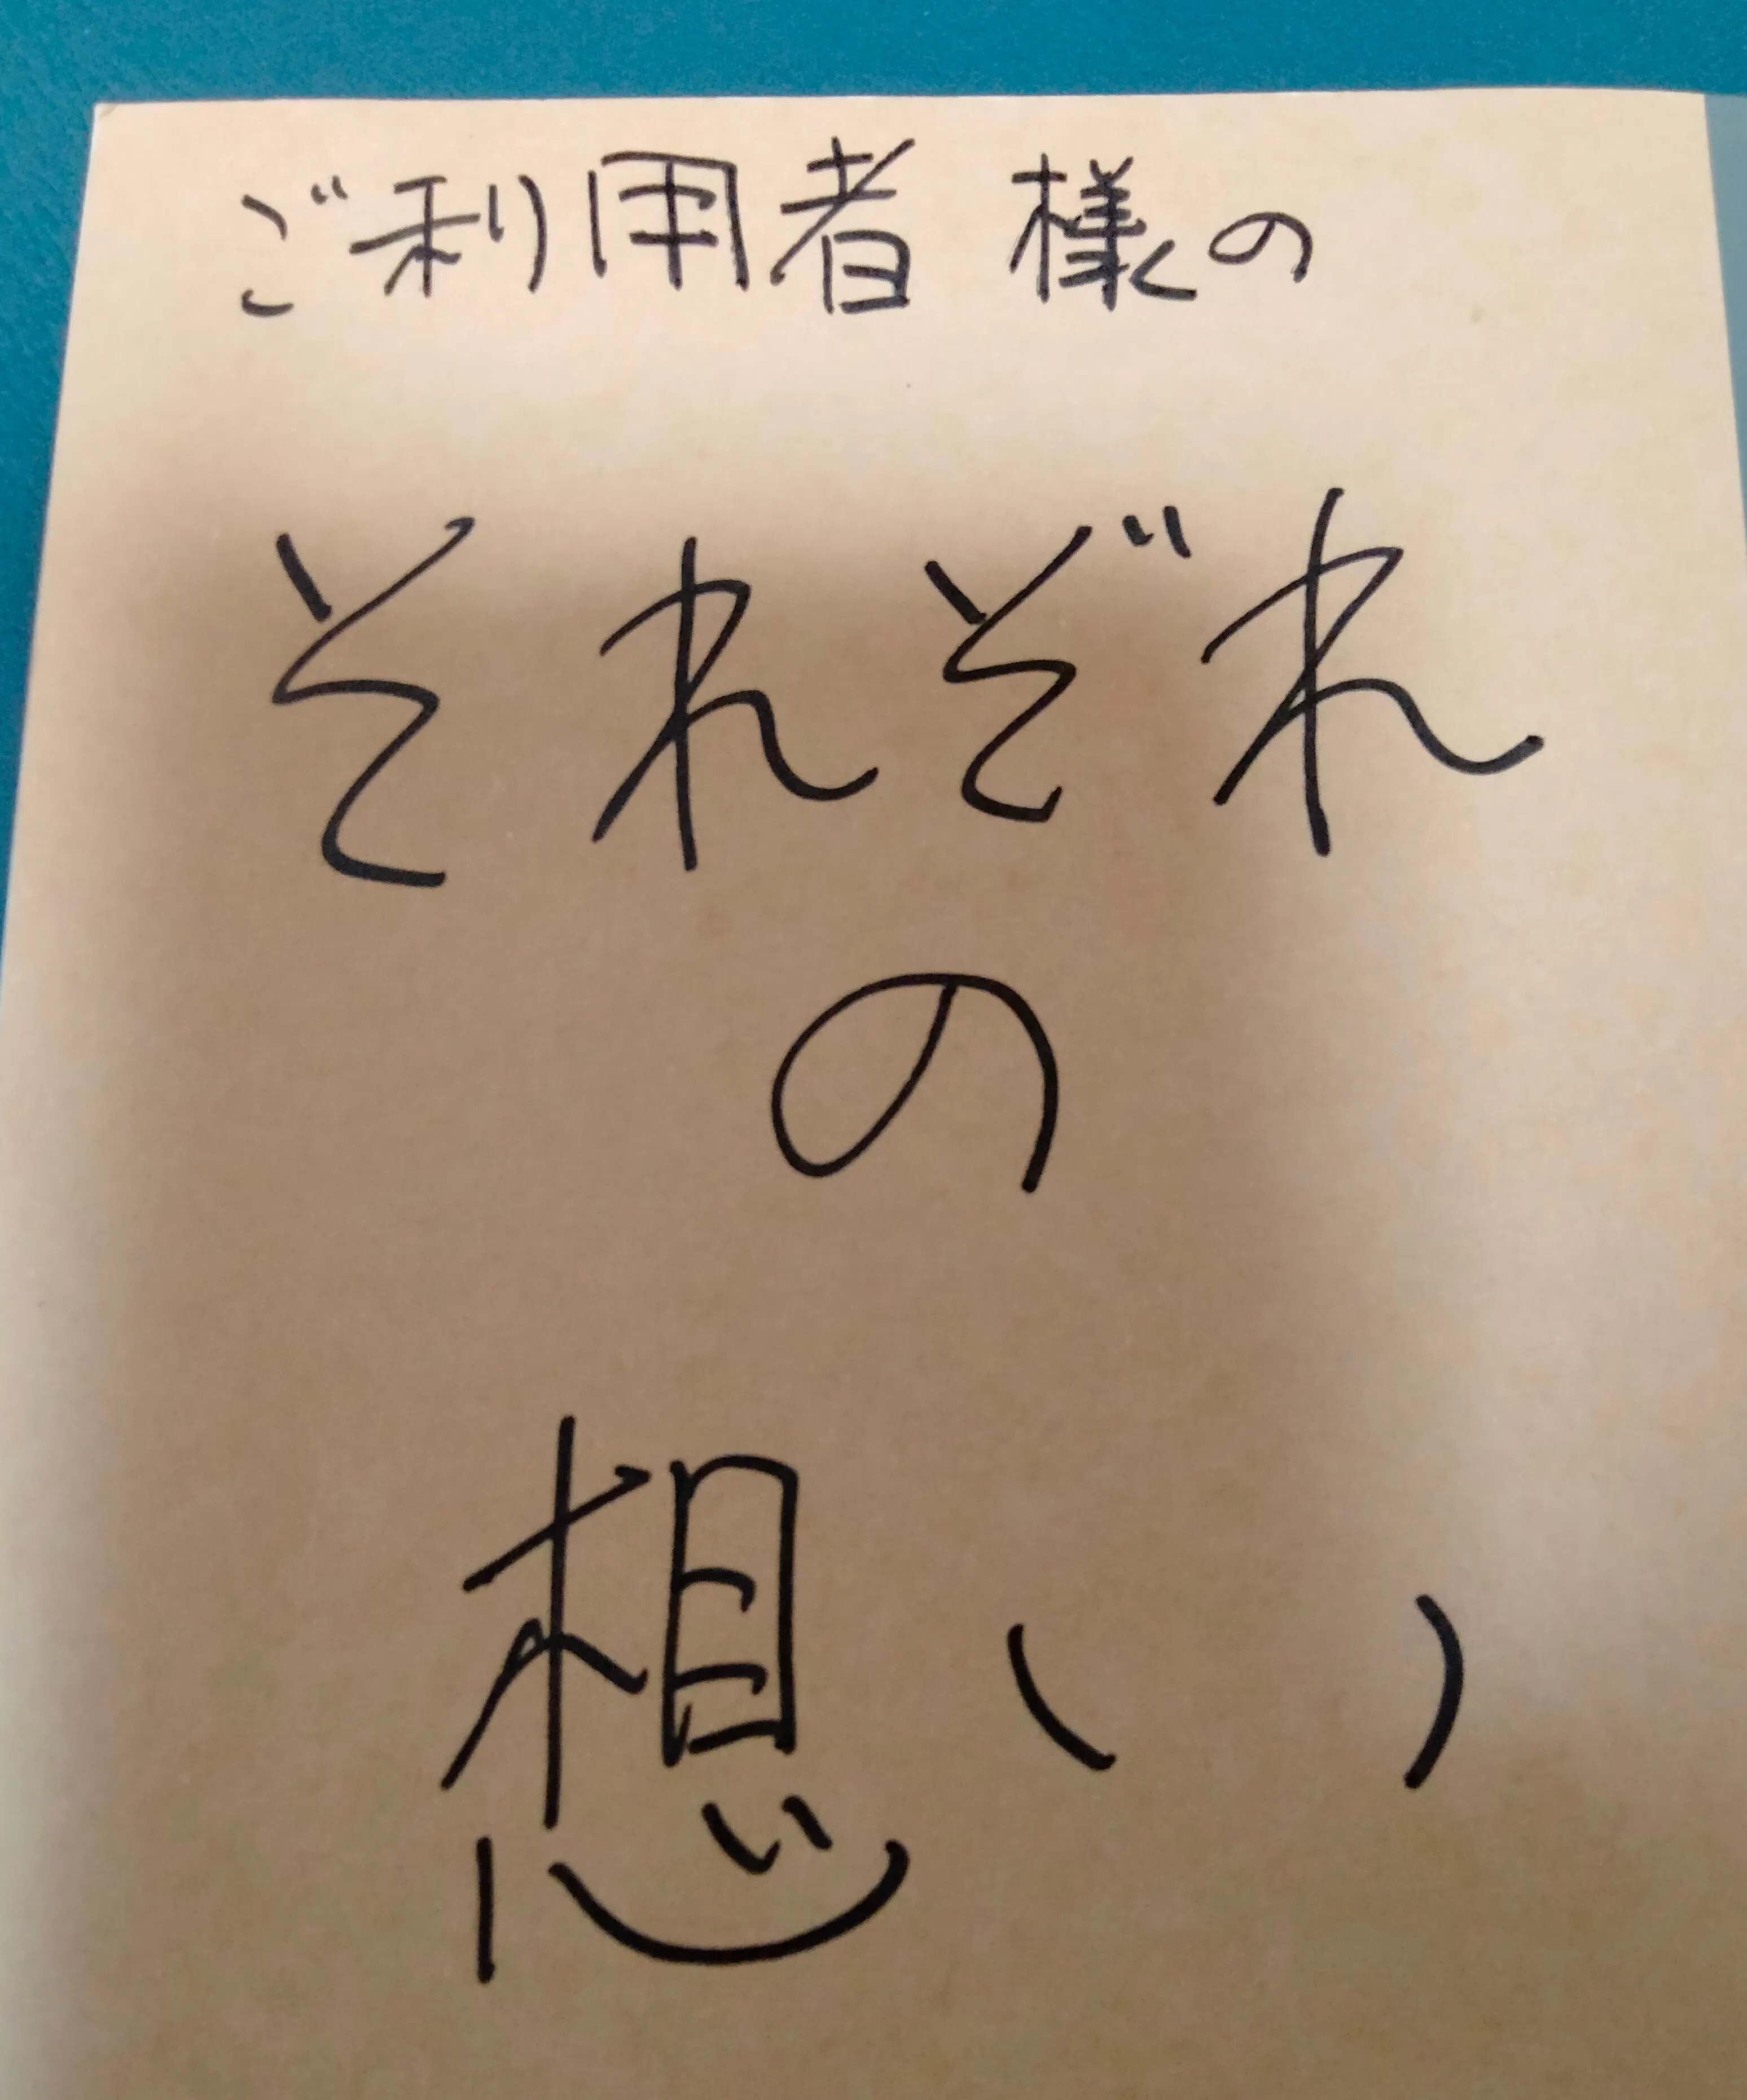 ご利用者様の
それぞれ
の
想い